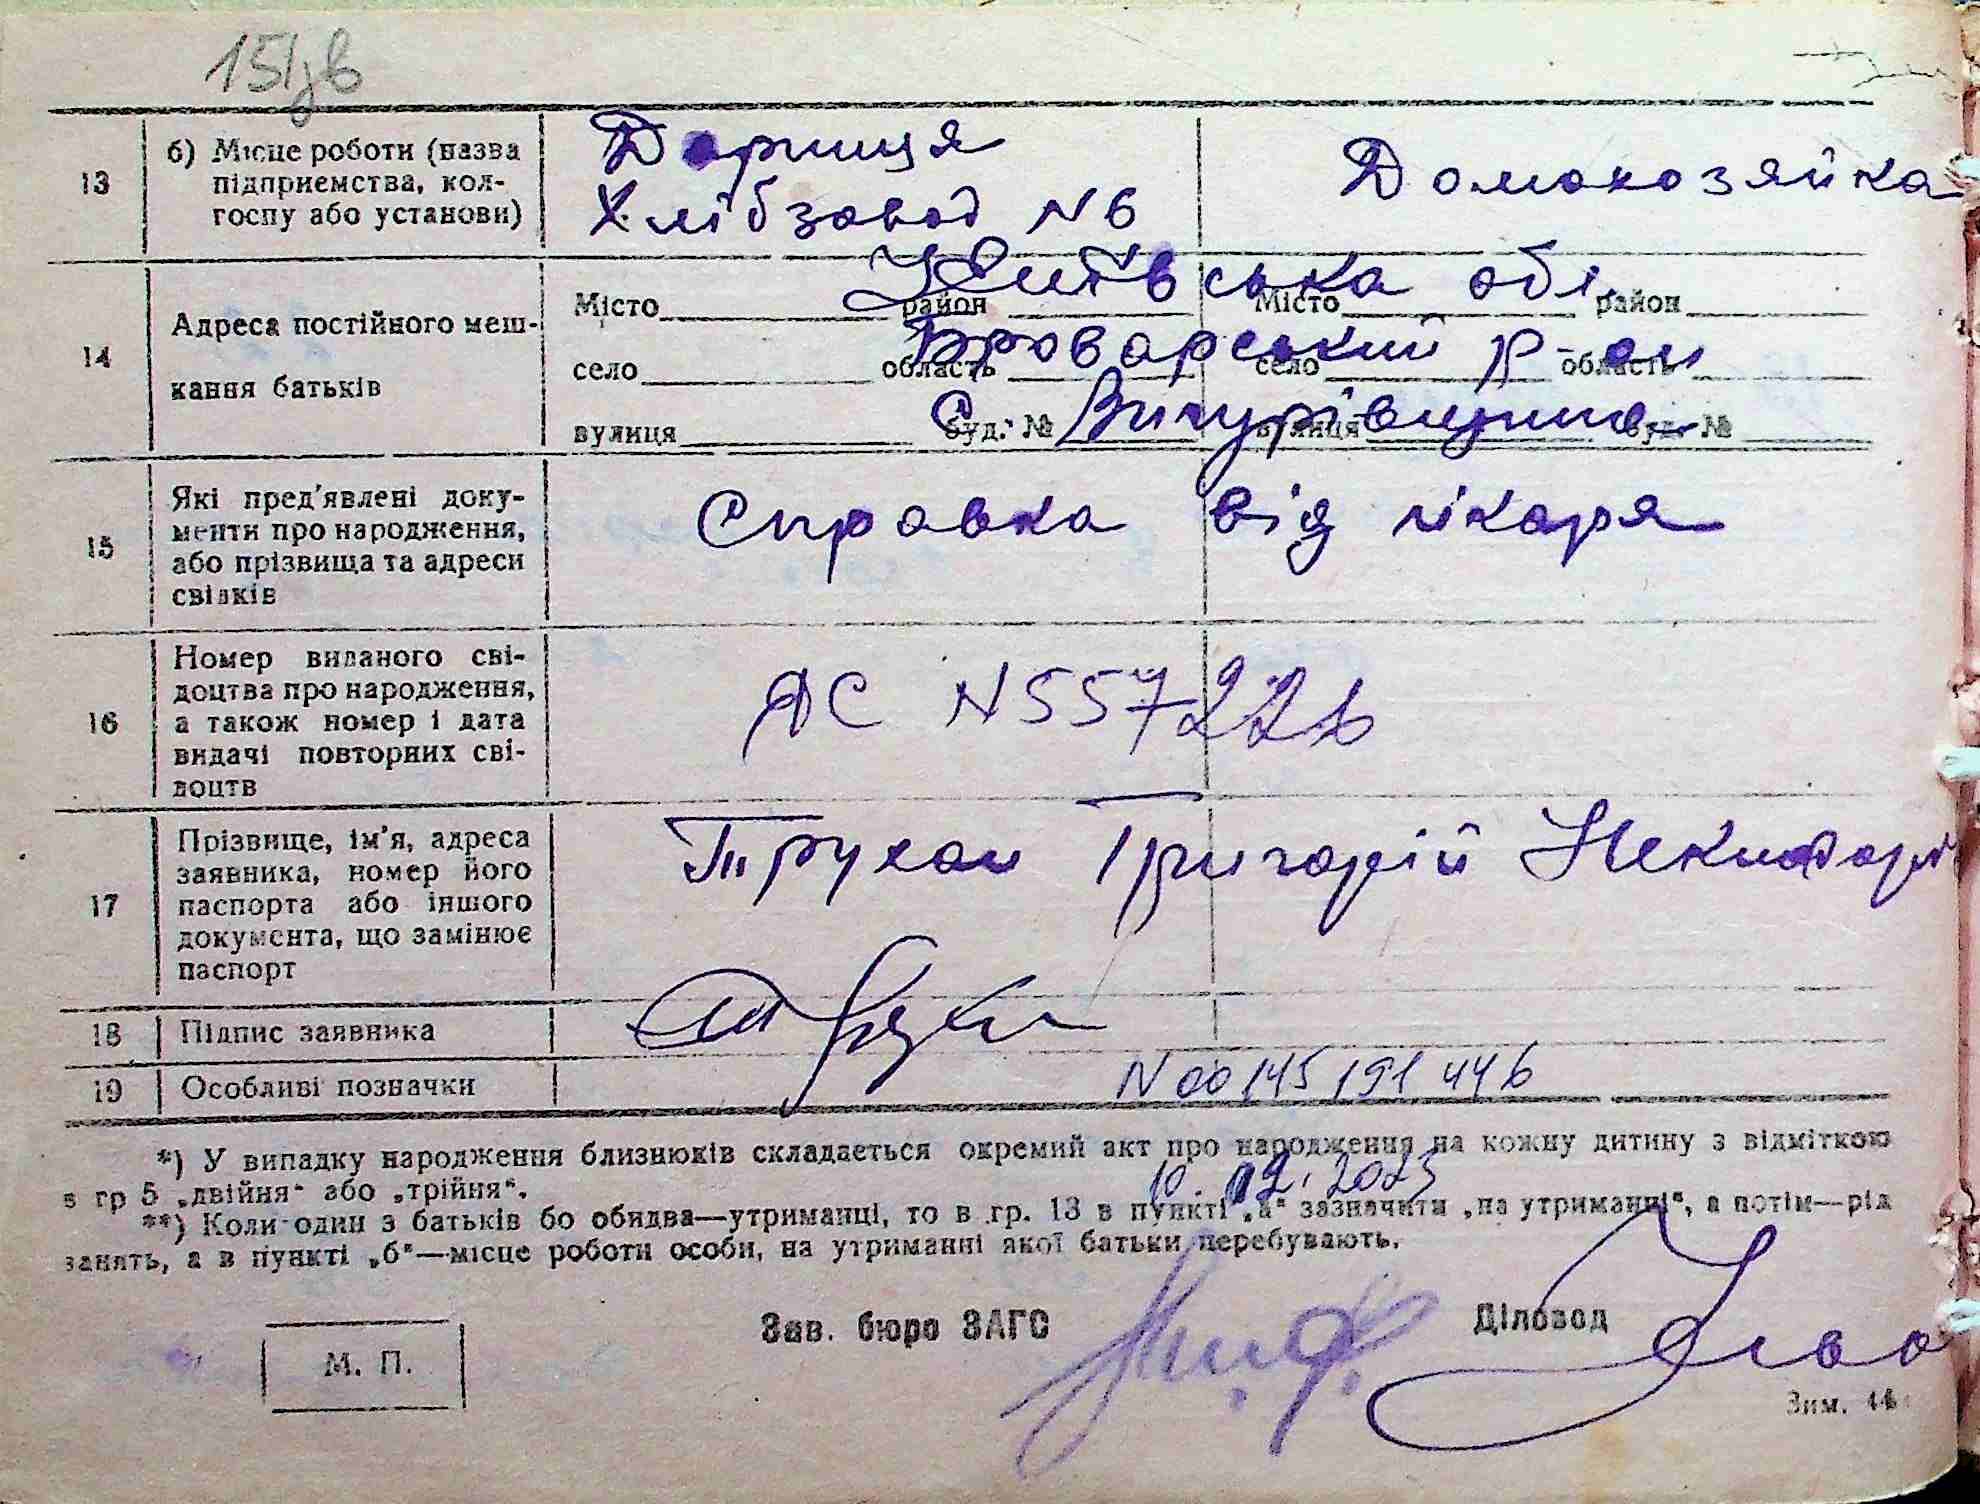 151зв
13
б) Місце роботи (назва
підприємства, кол-
госпу або установи)
Дарниця
Хлібзавод N6
Домохозяйка
14
Адреса постійного меш-
кання батьків
Місто район Місто район
село область село область
вулиця буд. № вулиця буд. №
Київська обл.
Броварський р-он
С. Вигурівщина
15
Які пред'явлені доку-
менти про народження,
або прізвища та адреси
свідків
Справка від лікаря
16
Номер виданого сві-
доцтва про народження,
а також номер і дата
видачі повторних сві-
доцтв
ЯС N557226
17
Прізвище, ім'я, адреса
заявника, номер його
паспорта або іншого
документа, що замінює
паспорт
Трухан Григорій
18
Підпис заявника
19
Особливі позначки
N 00145191446
*) У випадку народження близнюків складається окремий акт про народження на кожну дитину з відміткою
в гр 5 „двійня“ або „трійня“.
10.02.2023
**) Коли один з батьків бо обидва—утриманці, то в гр. 13 в пункті „а“ зазначити „на утриманні“, а потім—рід
занять, а в пункті „б“—місце роботи особи, на утриманні якої батьки перебувають.
Зав. бюро ЗАГС
Діловод
М. П.
Зим. 44